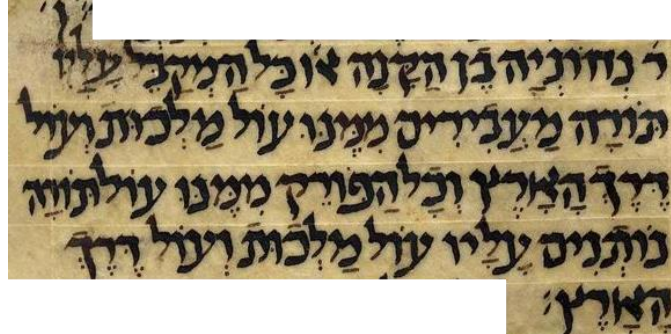 ר נְחוּנְיָה בֶּן הַקָּנָה אוֹ כָּל הַמְקַבֵּל עָלָיו
תּוֹרָה מַעֲבִירִים מִמֶּנּוּ עוֹל מַלְכוּת וְעוֹל
דֶּרֶךְ הָאָרֶץ וְכָל הַפּוֹרֵק מִמֶּנּוּ עוֹל תּוֹרָה
נוֹתְנִים עָלָיו עוֹל מַלְכוּת וְעוֹל דֶּרֶךְ
הָאָרֶץ׃